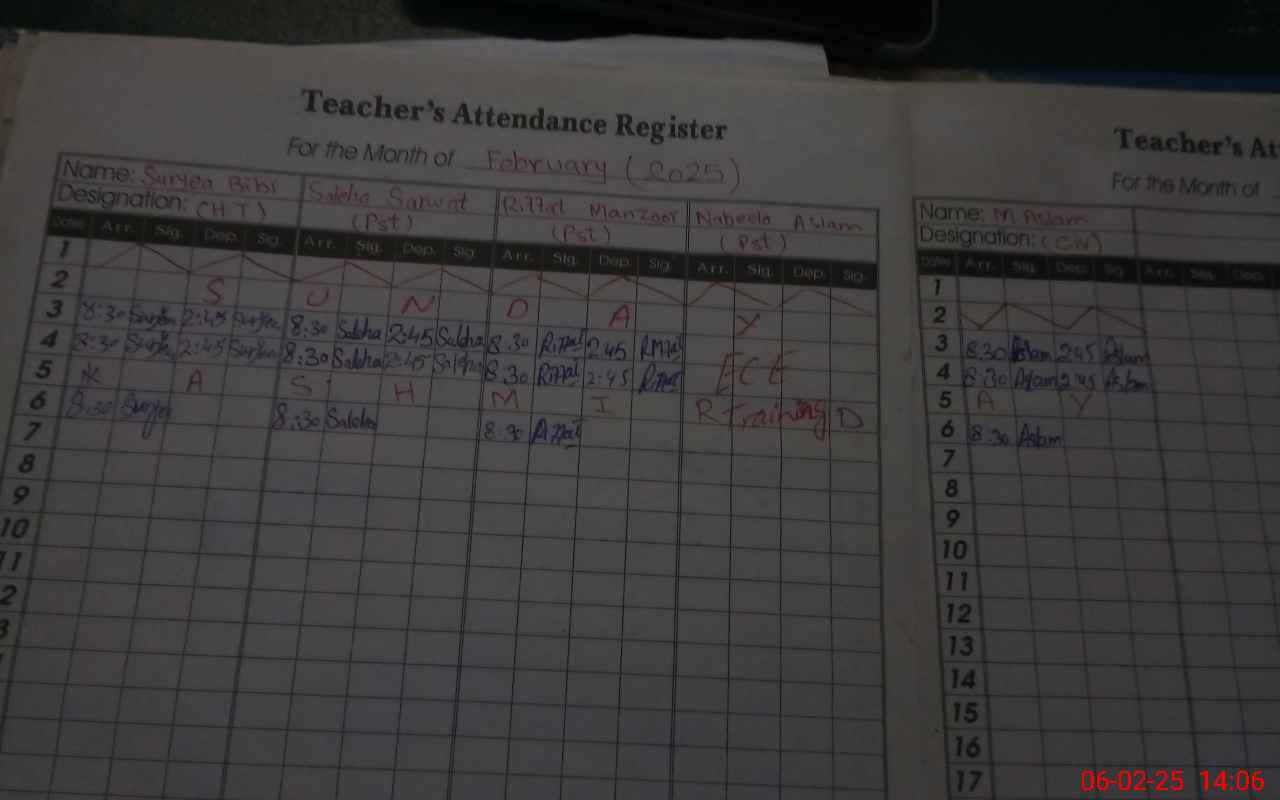 Teacher's Attendance Register
For the Month of February (2025)
Name: Surjea Bibi Saleha Sarwat Riffat Manzoor Nabeela Aslam
Designation: (H T) (Pst) (Pst) (Pst)
Dates Arr. Sig. Dep. Sig. Arr. Sig. Dep. Sig. Arr. Sig. Dep. Sig. Arr. Sig. Dep. Sig.
1
2 S U N D A Y
3 8:30 2:45 8:30 Saleha 2:45 Saleha 8:30 Riffat 2:45 Riffat
4 8:30 2:45 8:30 Saleha 2:45 Saleha 8:30 Riffat 2:45 Riffat ECE
5 K A S H M I R Training D
6 8:30 8:30 Saleha 8:30 Riffat
7
8
9
10
11
2
3
Teacher's At
For the Month of
Name: M Aslam
Designation:
Dates Arr. Sig. Dep. Sig. Arr. Sig. Dep.
1
2
3 8:30 Aslam 2:45 Aslam
4 8:30 Aslam 2:45 Aslam
5 A Y
6 8:30 Aslam
7
8
9
10
11
12
13
14
15
16
17
06-02-25 14:06